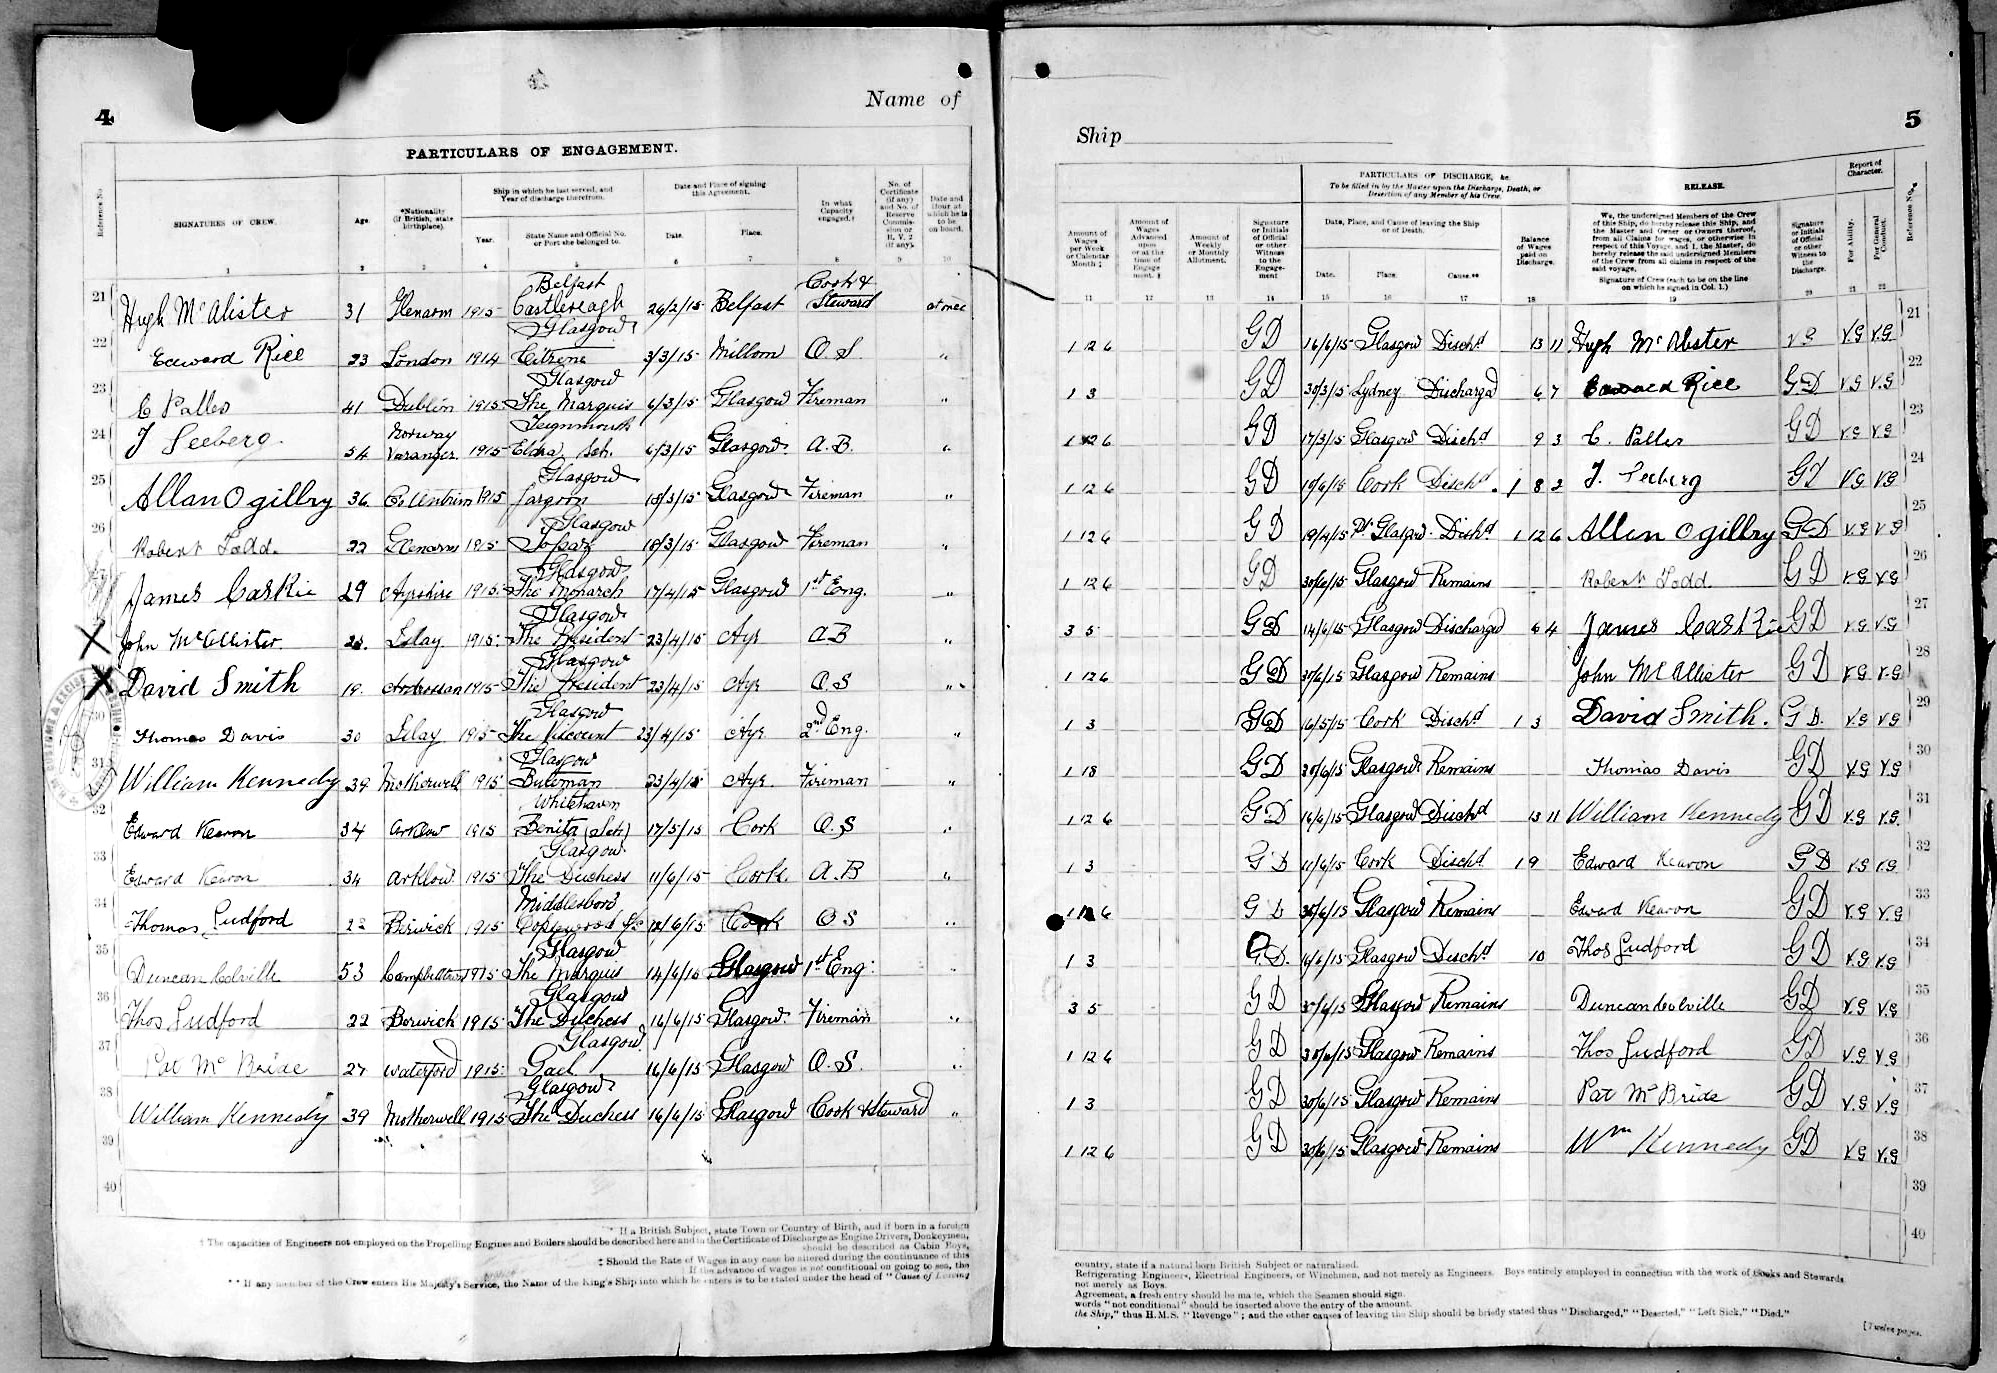 4
Name of
PARTICULARS OF ENGAGEMENT.
Reference No.
SIGNATURES OF CREW.
Age.
*Nationality (if British, state birthplace).
Ship in which he last served, and Year of discharge therefrom.
Year.
State Name and Official No. or Port she belonged to.
Date and Place of signing this Agreement.
Date.
Place.
In what Capacity engaged.†
No. of Certificate (if any) and No. of Reserve Commission or R. V. 2 (if any).
Date and Hour at which he is to be on board.
1 2 3 4 5 6 7 8 9 10
Belfast Cook &
21 Hugh McAlister 31 Glenarm 1915 Castlereagh 26/2/15 Belfast Steward at once
Glasgow
22 Edward Rice 23 London 1914 Citrine 3/3/15 Millom O.S. "
Glasgow
23 C Palles 41 Dublin 1915 The Marquis 6/3/15 Glasgow Fireman "
Norway Teignmouth
24 J Seeberg. 54 Varanger 1915 Sch. 6/3/15 Glasgow A.B. "
Glasgow
25 Allan Ogillby 36 Co Antrim 1915 18/3/15 Glasgow Fireman "
Glasgow
26 Robert Todd. 22 Glenarm 1915 Topaz 18/3/15 Glasgow Fireman "
Glasgow
James Caskie 29 Ayrshire 1915 The Monarch 17/4/15 Glasgow 1st Eng. "
Glasgow
X John McAllister Islay 1915 The President 23/4/15 Ayr AB "
Glasgow
X David Smith 19 Ardrossan 1915 The President 23/4/15 Ayr O.S "
Glasgow
30 Thomas Davis 30 Islay 1915 The Viscount 23/4/15 Ayr 2nd Eng. "
Glasgow
31 William Kennedy 39 Motherwell 1915 Buteman 23/4/15 Ayr Fireman "
Whitehaven
32 Edward Kearon 34 Arklow 1915 Benita (Sch) 17/5/15 Cork O.S "
Glasgow
33 Edward Kearon 34 Arklow 1915 The Duchess 11/6/15 Cork. A.B "
Middlesboro
34 Thomas Ludford 22 Berwick 1915 12/6/15 Cork O S "
Glasgow
35 Duncan Colville 53 Campbeltown 1915 The Marquis 14/6/15 Glasgow 1st Eng. "
Glasgow
36 Thos Ludford 22 Berwick 1915 The Duchess 16/6/15 Glasgow Fireman "
Glasgow
37 Pat McBride 27 Waterford 1915 Gael 16/6/15 Glasgow O.S. "
Glasgow
38 William Kennedy 39 Motherwell 1915 The Duchess 16/6/15 Glasgow Cook & Steward "
39
40
* If a British Subject, state Town or Country of Birth, and if born in a foreign
† The capacities of Engineers not employed on the Propelling Engines and Boilers should be described here and in the Certificate of Discharge as Engine Drivers, Donkeymen,
should be described as Cabin Boys,
‡ Should the Rate of Wages in any case be altered during the continuance of this
If the advance of wages is not conditional on going to sea, the
** If any member of the Crew enters His Majesty's Service, the Name of the King's Ship into which he enters is to be stated under the head of "Cause of Leaving
5
Ship
Amount of Wages per Week or Calendar Month ‡
Amount of Wages Advanced upon or at the time of Engagement. ‡
Amount of Weekly or Monthly Allotment.
Signature or Initials of Official or other Witness to the Engagement
PARTICULARS OF DISCHARGE, &c.
To be filled in by the Master upon the Discharge, Death, or Desertion of any Member of his Crew.
Date, Place, and Cause of leaving the Ship or of Death.
Date. Place. Cause.**
Balance of Wages paid on Discharge.
RELEASE.
We, the undersigned Members of the Crew of this Ship, do hereby release this Ship, and the Master and Owner or Owners thereof, from all Claims for wages, or otherwise in respect of this Voyage, and I, the Master, do hereby release the said undersigned Members of the Crew from all claims in respect of the said voyage.
Signature of Crew (each to be on the line on which he signed in Col. 1.)
Signature or Initials of Official or other Witness to the Discharge.
Report of Character.
For Ability.
For General Conduct.
Reference No.
11 12 13 14 15 16 17 18 19 20 21 22
1 12 6 GD 16/6/15 Glasgow Dischd 13 11 Hugh McAlister V.G V.G 21
1 3 GD 30/3/15 Sydney Discharged 6 7 Edward Rice GD V.G V.G 22
1 12 6 GD 17/3/15 Glasgow Dischd 9 3 C. Palles GD V.G V.G 23
1 12 6 GD Cork Dischd. 1 8 2 J. Seeberg GD V.G V.G 24
1 12 6 GD 19/4/15 Pt Glasgow Dischd 1 12 6 Allan Ogillby GD V.G V.G 25
1 12 6 GD 30/6/15 Glasgow Remains Robert Todd GD V.G V.G 26
3 5 GD 14/6/15 Glasgow Discharged 6 4 James Caskie GD V.G V.G 27
1 12 6 GD 30/6/15 Glasgow Remains John McAllister GD V.G V.G 28
1 3 GD 16/5/15 Cork Dischd 1 3 David Smith. G D. V.G V.G 29
1 18 GD 30/6/15 Glasgow Remains Thomas Davis GD V.G V.G 30
1 12 6 GD 16/6/15 Glasgow Dischd 13 11 William Kennedy GD V.G V.G. 31
1 3 GD 11/6/15 Cork Dischd. 1 9 Edward Kearon GD V.G V.G 32
1 12 6 GD 30/6/15 Glasgow Remains Edward Kearon GD V.G V.G 33
1 3 G.D. 16/6/15 Glasgow Dischd 10 Thos Ludford GD V.G V.G 34
3 5 GD 30/6/15 Glasgow Remains Duncan Colville GD V.G V.G 35
1 12 6 GD 30/6/15 Glasgow Remains Thos Ludford GD V.G V.G 36
1 3 GD 30/6/15 Glasgow Remains Pat McBride GD V.G V.G 37
1 12 6 GD 30/6/15 Glasgow Remains Wm Kennedy GD V.G V.G 38
39
40
country, state if a natural born British Subject or naturalised.
Refrigerating Engineers, Electrical Engineers, or Winchmen, and not merely as Engineers. Boys entirely employed in connection with the work of Cooks and Stewards
not merely as Boys.
Agreement, a fresh entry should be made, which the Seamen should sign.
words "not conditional" should be inserted above the entry of the amount.
the Ship," thus H.M.S. "Revenge"; and the other causes of leaving the Ship should be briefly stated thus "Discharged," "Deserted," "Left Sick," "Died."
[Twelve pages.